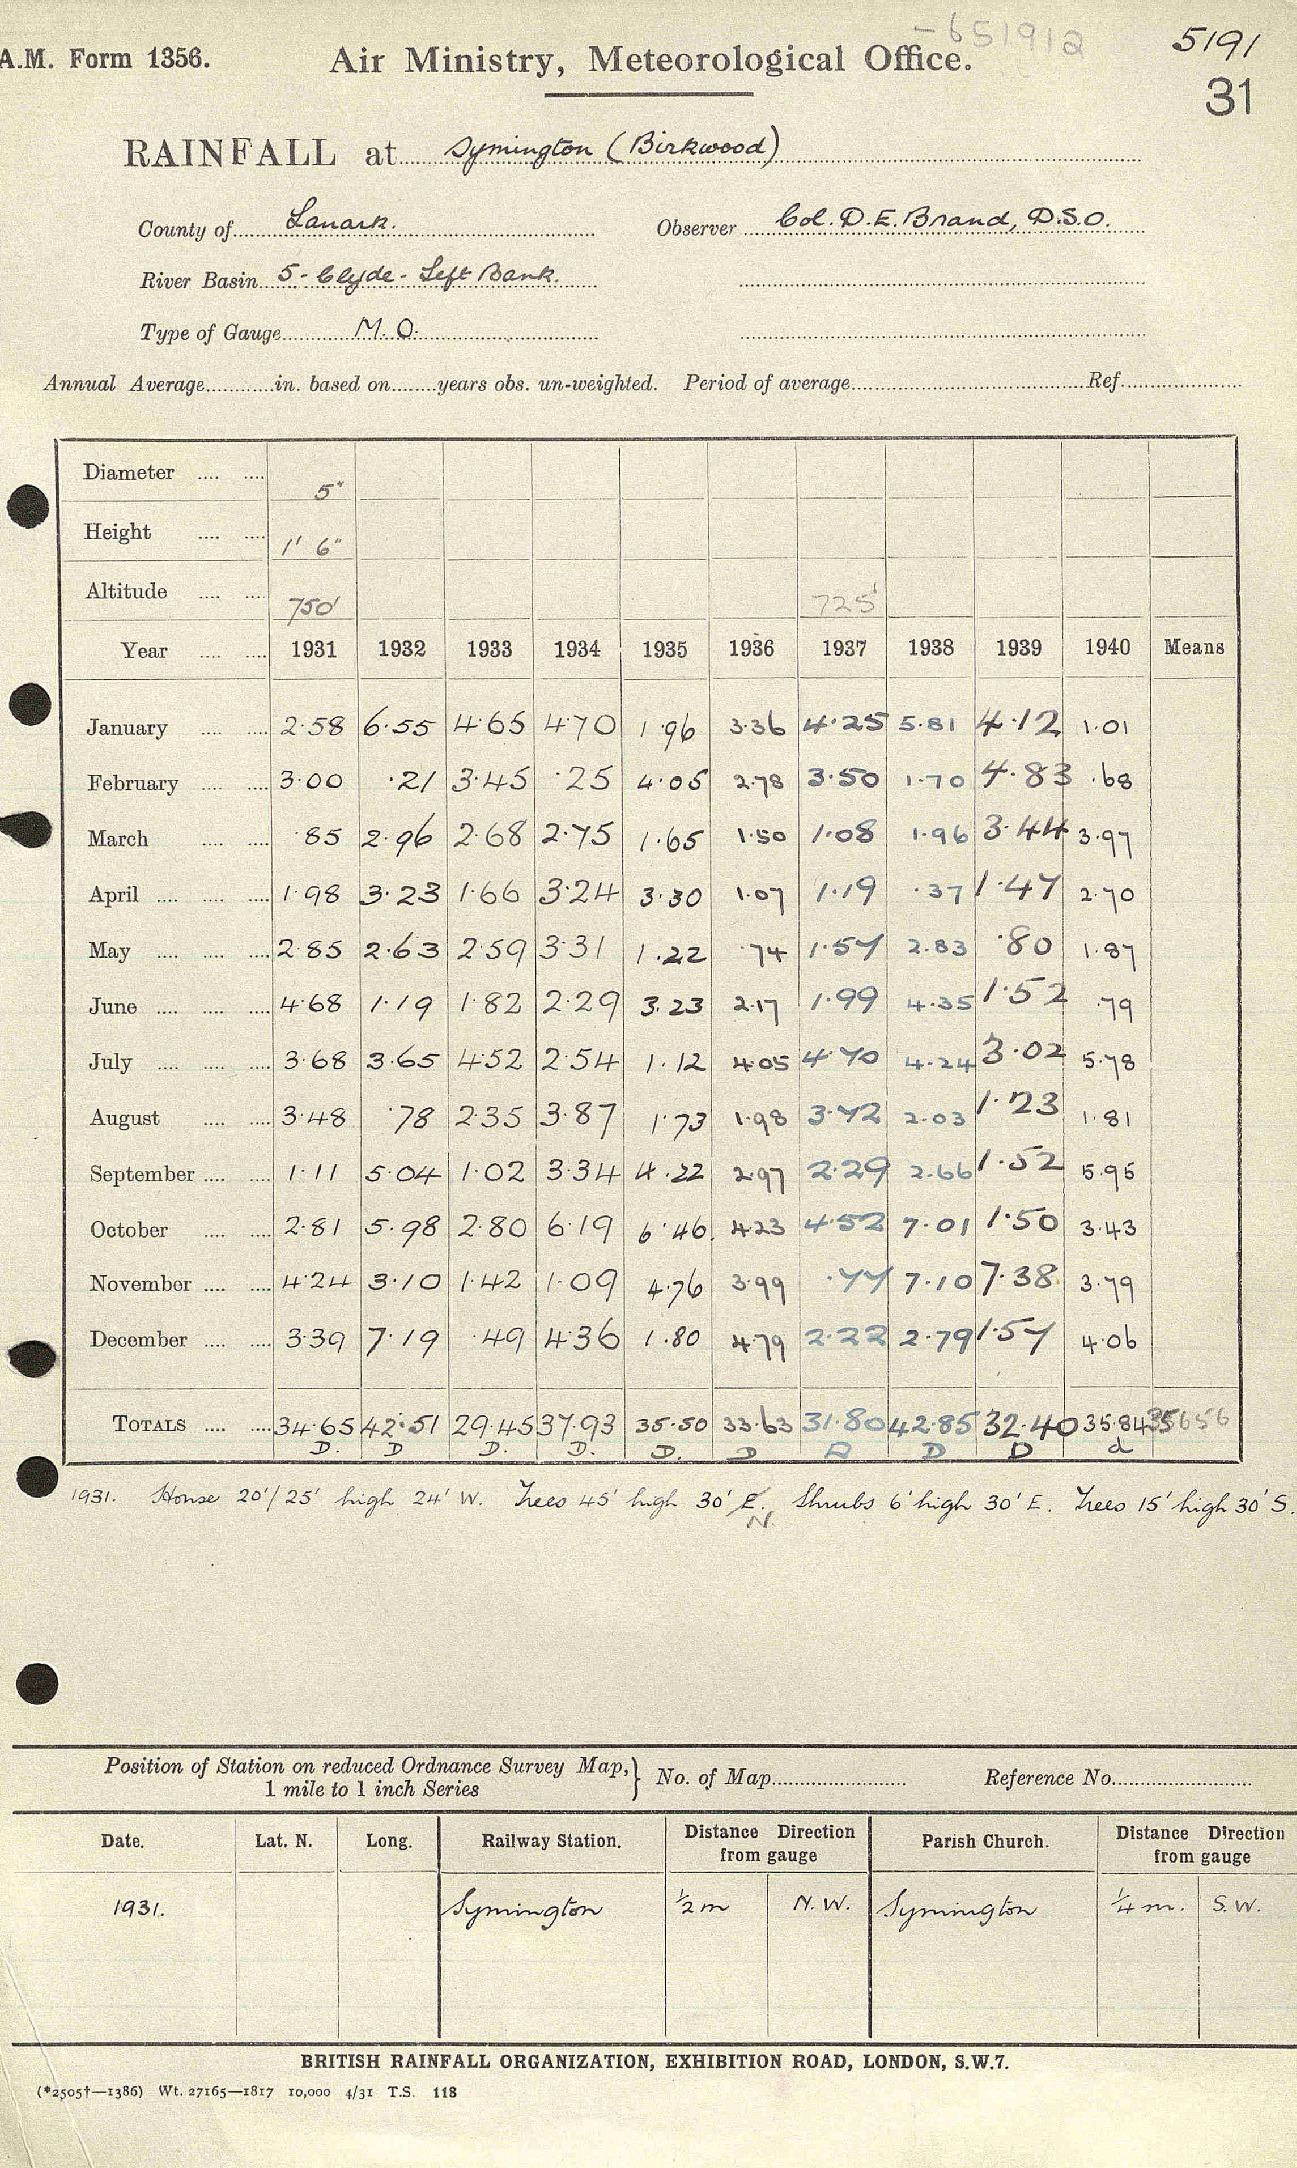 -651912
5191
A.M. Form 1356.
Air Ministry, Meteorological Office.
31
RAINFALL at Symington (Birkwood)
County of Lanark. Observer Col. D.E. Brand, D.S.O.
River Basin 5 - Clyde - Left Bank.
Type of Gauge M. O.
Annual Average in. based on years obs. un-weighted. Period of average Ref
Diameter 5"
Height 1' 6"
Altitude 750' 725'
Year 1931 1932 1933 1934 1935 1936 1937 1938 1939 1940 Means
January 2.58 6.55 4.65 4.70 1.96 3.36 4.25 5.81 4.12 1.01
February 3.00 .21 3.45 .25 4.05 2.78 3.50 1.70 4.83 .68
March .85 2.96 2.68 2.75 1.65 1.50 1.08 1.96 3.44 3.97
April 1.98 3.23 1.66 3.24 3.30 1.07 1.19 .37 1.47 2.70
May 2.85 2.63 2.59 3.31 1.22 .74 1.57 2.83 .80 1.87
June 4.68 1.19 1.82 2.29 3.23 2.17 1.99 4.35 1.52 .79
July 3.68 3.65 4.52 2.54 1.12 4.05 4.70 4.24 3.02 5.78
August 3.48 .78 2.35 3.87 1.73 1.98 3.72 2.03 1.23 1.81
September 1.11 5.04 1.02 3.34 4.22 2.97 2.29 2.66 1.52 5.95
October 2.81 5.98 2.80 6.19 6.46 4.23 4.52 7.01 1.50 3.43
November 4.24 3.10 1.42 1.09 4.76 3.99 .77 7.10 7.38 3.79
December 3.39 7.19 .49 4.36 1.80 4.79 2.22 2.79 1.57 4.06
TOTALS 34.65 42.51 29.45 37.93 35.50 33.63 31.80 42.85 32.40 35.84 35656
D. D D. D. D. D D D D d
1931. House 20'/25' high 24' W. Trees 45' high 30' E. Shrubs 6' high 30' E. Trees 15' high 30' S.
N.
Position of Station on reduced Ordnance Survey Map,
1 mile to 1 inch Series } No. of Map Reference No.
Date. Lat. N. Long. Railway Station. Distance Direction from gauge Parish Church. Distance Direction from gauge
1931. Symington ½ m N. W. Symington ¼ m. S. W.
BRITISH RAINFALL ORGANIZATION, EXHIBITION ROAD, LONDON, S.W.7.
(*2505†—1386) Wt. 27165—1817 10,000 4/31 T.S. 118